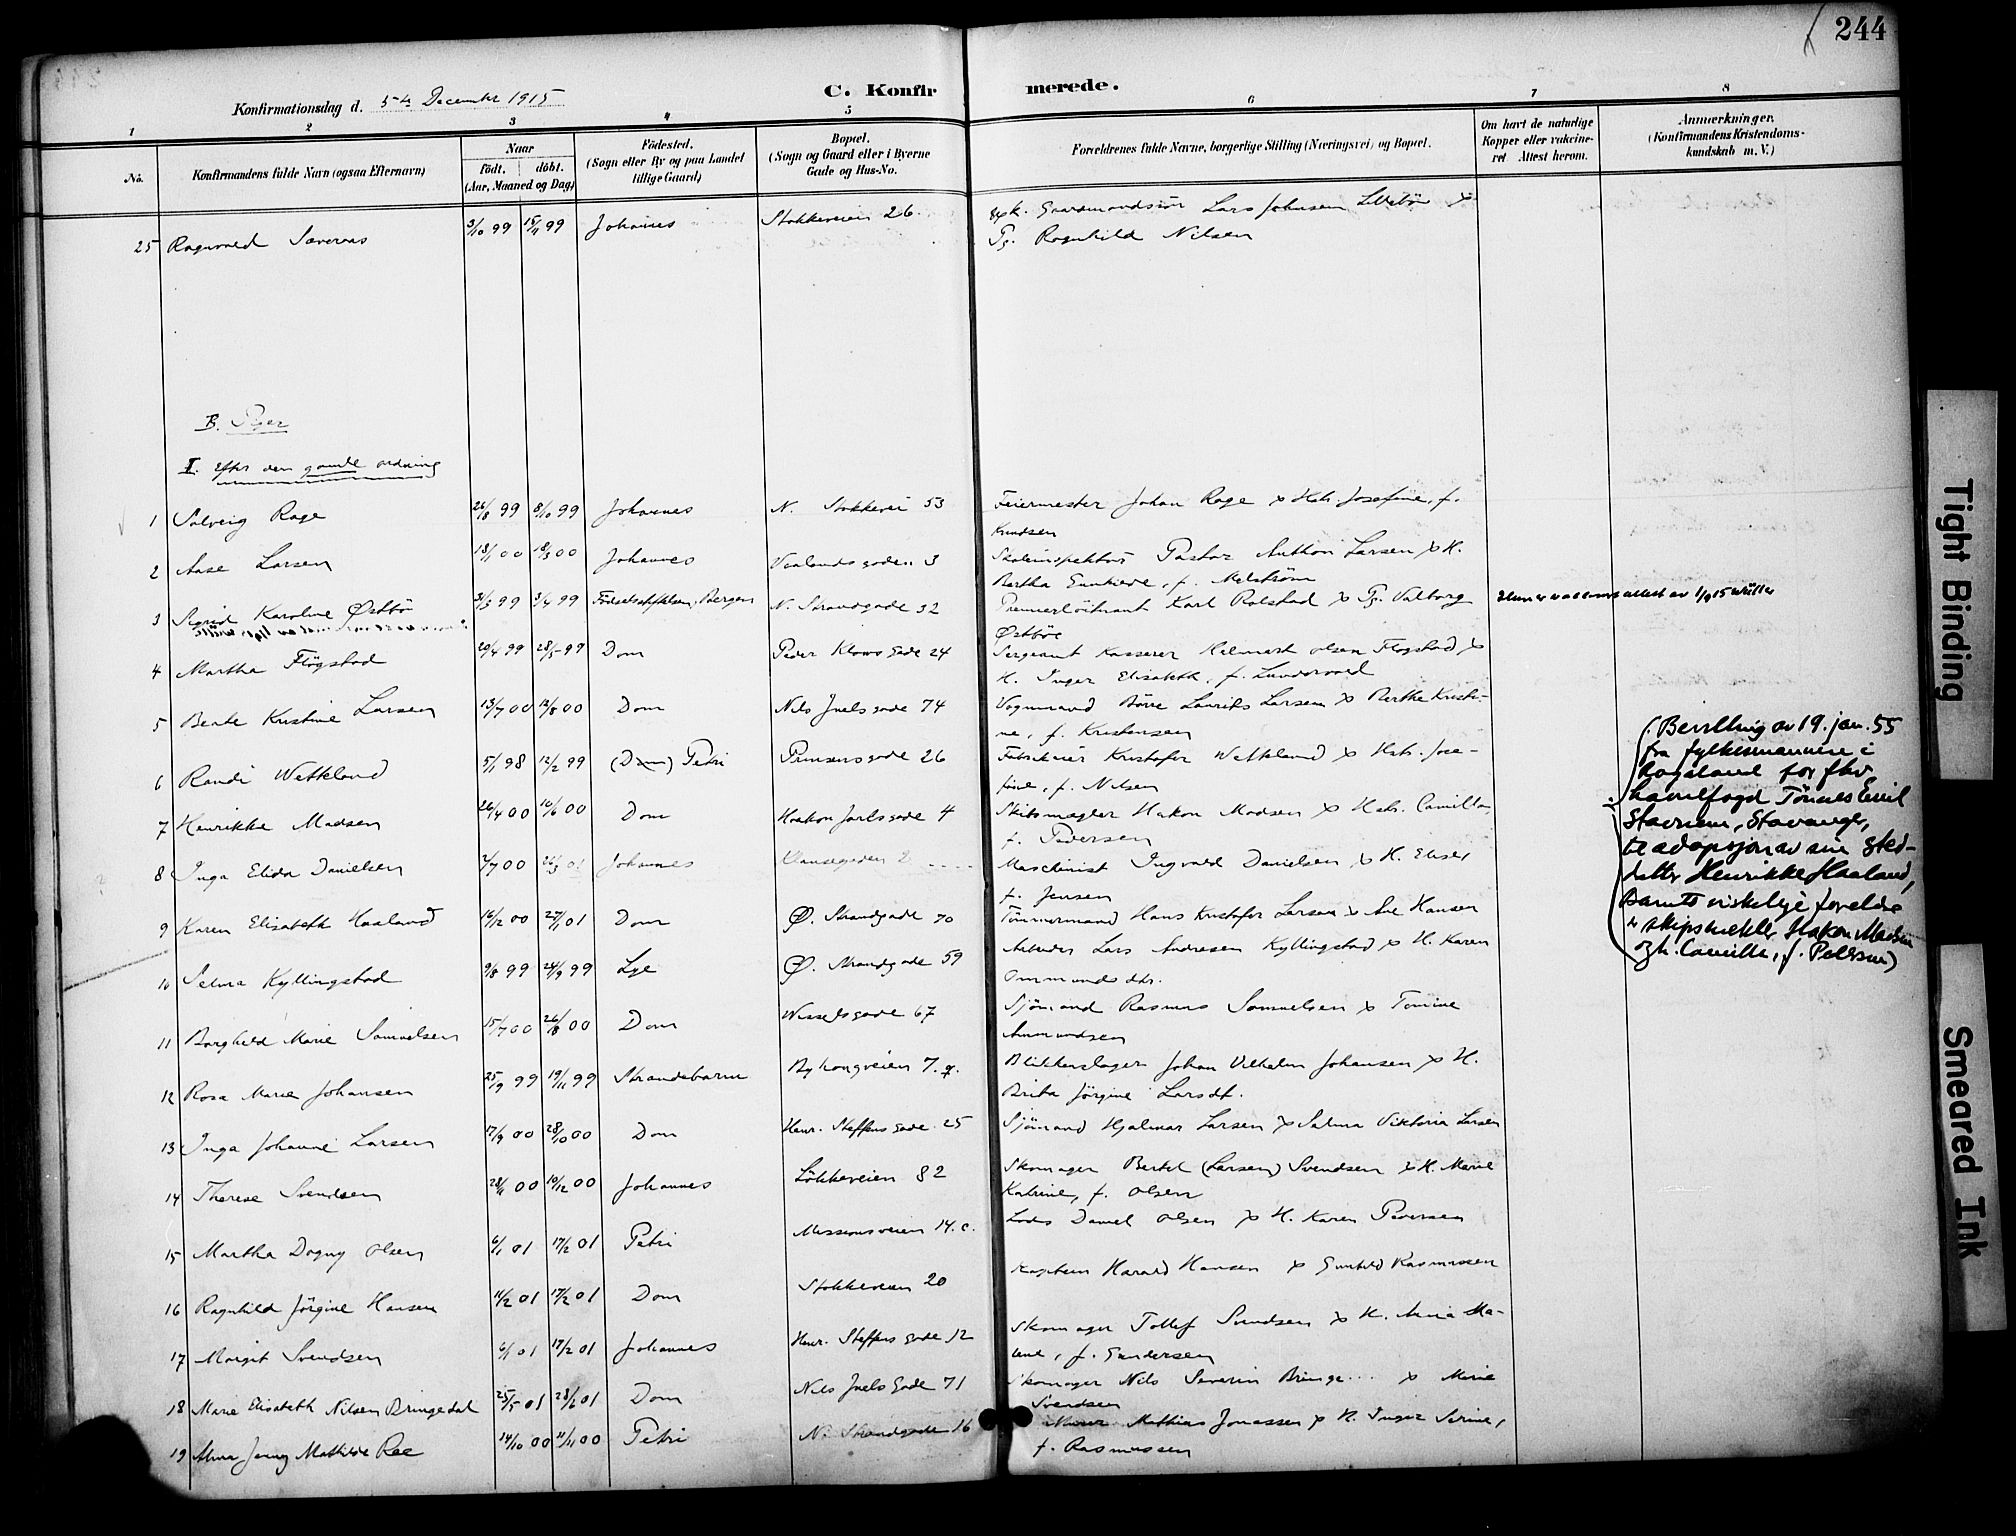 244
Konfirmationsdag d. 5te December 1915
C. Konfirmerede.
1 2 3 4 5 6 7 8
No.
Konfirmandens fulde Navn (ogsaa Efternavn)
Naar
født. døbt.
(Aar, Maaned og Dag)
Fødested.
(Sogn eller By og paa Landet
tillige Gaard)
Bopæl.
(Sogn og Gaard eller i Byerne
Gade og Hus-No.
Forældrenes fulde Navne, borgerlige Stilling (Næringsvei) og Bopæl.
Om havt de naturlige
Kopper eller vakcine-
ret. Attest herom.
Anmærkninger.
(Konfirmandens Kristendoms-
kundskab m. V.)
25 Ragnvald Sævereas 3/10 99 15/11 99 Johannes Stokkeveien 26. Gaardmandssøn Lars Johnsen Lillebø x
Pg. Ragnhild Nilsen
B. Piger
I. Efter den gamle ordning
1 Solveig Rage 26/8 99 8/10 99 Johannes N. Stokkevei 53 Feiermester Johan Rage x Hstr. Josefine, f.
Knudsen
2 Aase Larsen 18/1 00 18/3 00 Johannes Vaalandsgaden 3 Skoleinspektør Pastor Anthon Larsen x H.
Bertha Gunhilde, f. Melstrøm
3 Sigrid Karoline Østbø 31/3 99 3/4 99 Fødselsstiftelsen, Bergen N. Strandgade 32 Premierløitnant Karl Rolstad x Pg. Valborg
Østbøe
4 Martha Fløgstad 20/4 99 28/5 99 Dom Peder Klows gade 24 Sergeant Kasserer Helmart Olsen Fløgstad x
H. Inger Elisabeth, f. Lundervold
5 Beate Kristine Larsen 13/7 00 12/8 00 Dom Nils Juels gade 74 Vognmand Børre Laurits Larsen x Berthe Kristi-
ne, f. Kristensen
6 Randi Wetteland 5/1 98 12/2 99 (Dom) Petri Prinsensgade 26 Fabrikeier Kristofer Wetteland x Hstr. Jose-
fine, f. Nilsen
7 Henrikke Madsen 26/4 00 10/6 00 Dom Haakon Jarls gade 4 Skibsmægler Hakon Madsen x Hstr. Camilla,
f. Pedersen
8 Inga Elida Danielsen 2/7 00 26/3 01 Johannes Klausegaden 2 Maschinist Ingvald Danielsen x H. Elise,
f. Jensen
9 Karen Elisabeth Haaland 16/12 00 27/1 01 Dom Ø. Strandgade 70 Tømmermand Hans Kristofer Larsen x Ane Hansen
10 Selma Kyllingstad 9/8 99 24/9 99 Lye Ø. Strandgade 59 Arbeider Lars Andresen Kyllingstad x H. Karen
Ommundsdtr.
11 Borghild Marie Samuelsen 15/7 00 26/8 00 Dom Wesselsgade 67 Sjømand Rasmus Samuelsen x Tomine
Ammundsen
12 Rosa Marie Johansen 25/9 99 19/11 99 Strandebarm Byhaugveien 7. Blikkenslager Johan Vilhelm Johansen x H.
Brita Jørgine Larsdt.
13 Inga Johanne Larsen 17/9 00 28/10 00 Dom Henr. Steffens gade 25 Sjømand Hjalmar Larsen x Salma Viktoria Larsen
14 Therese Svendsen 28/11 00 10/12 00 Johannes Løkkeveien 82 Skomager Bertel (Larsen) Svendsen x H. Marie
Katrine, f. Olsen
15 Martha Dagny Olsen 6/1 01 17/2 01 Petri Missionsveien 14.c. Lods Daniel Olsen x H. Karen Pedersen
16 Ragnhild Jørgine Hansen 14/2 01 17/2 01 Dom Stokkeveien 20 Kaptein Harald Hansen x Gunhild Rasmussen
17 Margit Svendsen 6/1 01 17/2 01 Johannes Henr. Steffens gade 12 Skomager Tollef Svendsen x H. Anna Ma-
lene, f. Gundersen
18 Marie Elisabeth Nilsen Bringedal 25/5 01 28/6 01 Dom Nils Juels gade 71 Skomager Nils Severin Bringe... x Marie
Svendsen
19 Alma Jenny Mathilde Ree 14/10 00 11/11 00 Petri N. Strandgade 16 Mathias Jonassen x H. Inger Serine,
f. Rasmussen
(Bevilling av 19. jan. 55
fra fylkesmannen i
Rogaland for fhv.
havnefogd Tønnes Emil
Stavnem, Stavanger,
til adopsjon av sin sted-
datter Henrikke Haaland,
Barnets virkelige foreldre
er skipsmekler Hakon Madsen
og h. Camilla, f. Pedersen)
Tight Binding
Smeared Ink